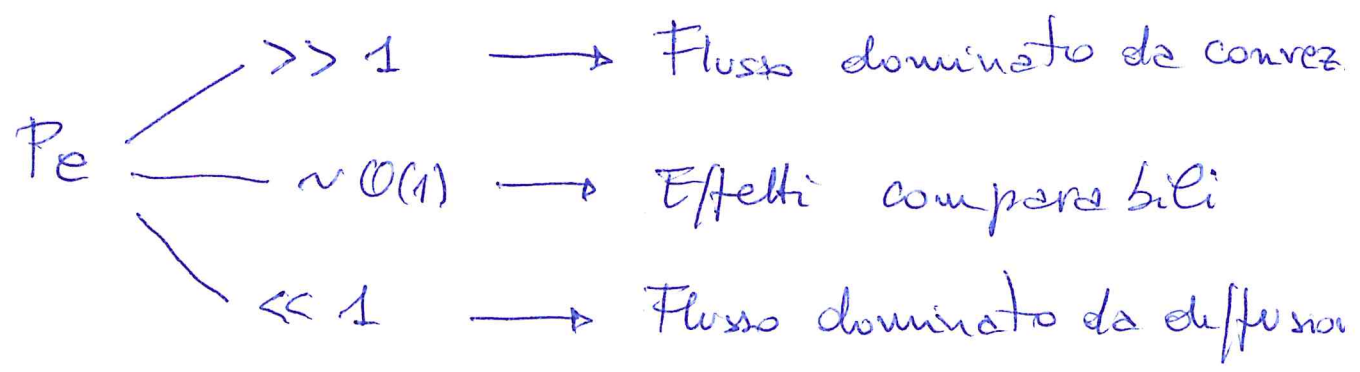 >> 1 → Flusso dominato da convez.
Pe ~ O(1) → Effetti comparabili
<< 1 → Flusso dominato da diffusion